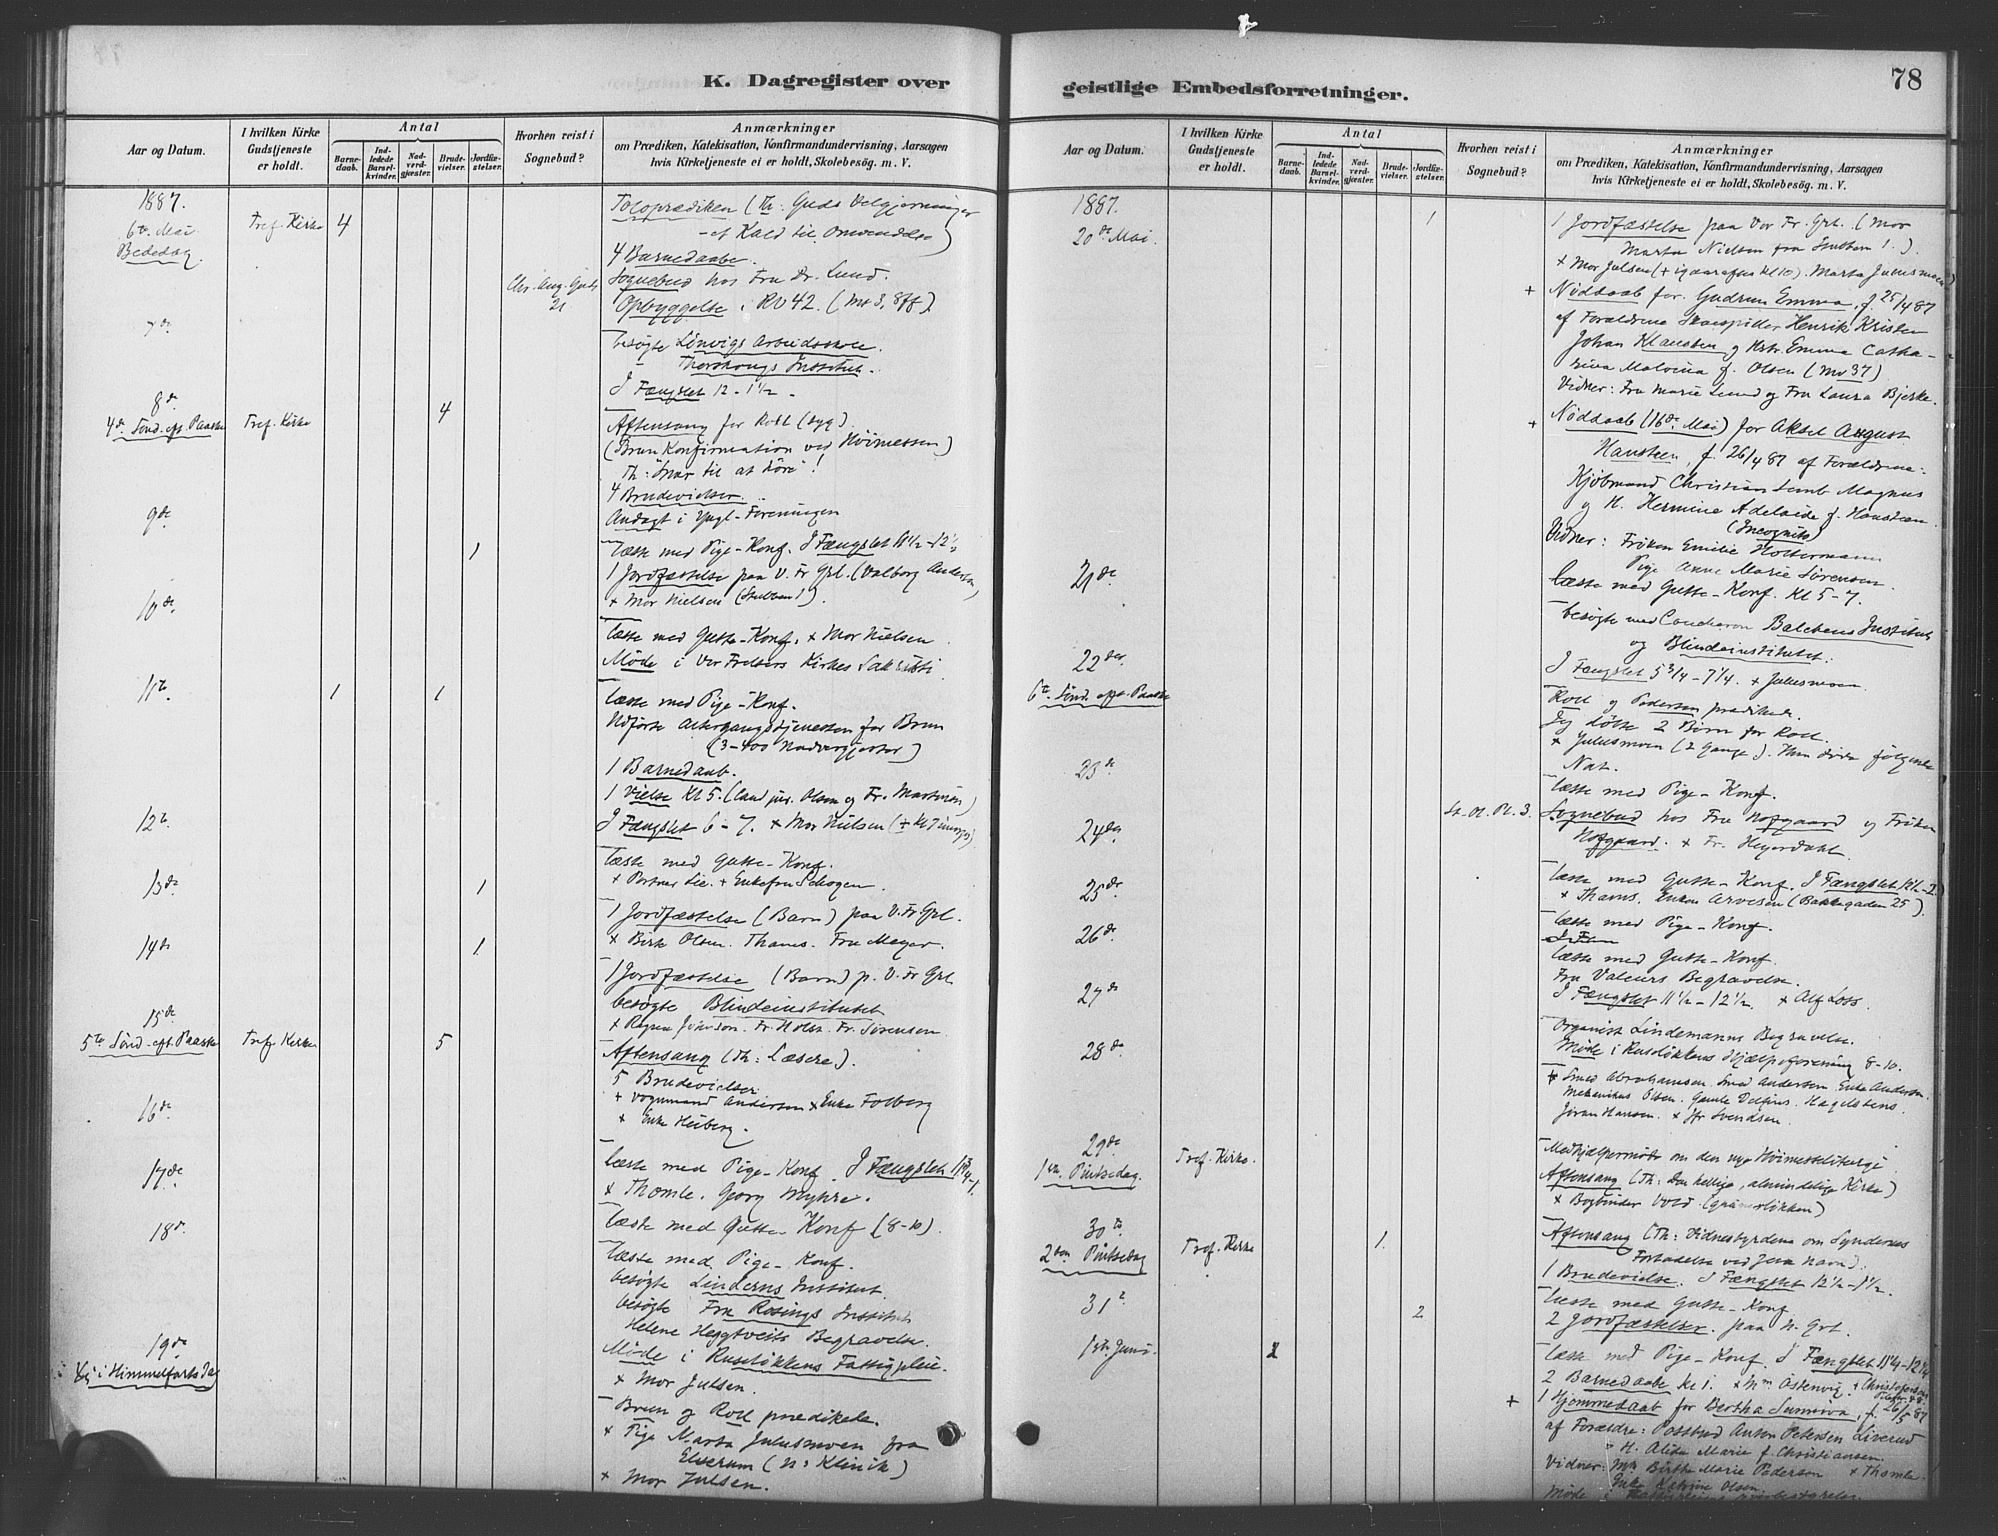 K. Dagregister over
Aar og Datum.
I hvilken Kirke Gudstjeneste er holdt.
Antal
Barnedaab.
Indledede Barselkvinder.
Nadverdgjæster.
Brudevielser.
Jordfæstelser.
Hvorhen reist i Sognebud?
Anmærkninger
om Prædiken, Katekisation, Konfirmandundervisning, Aarsagen
hvis Kirketjeneste ei er holdt, Skolebesög. m. V.
1887.
6te Mai Tref. Kirke 4
Bededag
Toloprædiken (Th: Guds Velgjerninger
et Kald til Omvendelse)
4 Barnedaabe.
Sognebud hos Fru Dr. Lund.
Opbyggelse i RV 42. (Mt 3, 8ff).
7de
besøgte Linvigs Arbeidsskole.
Institut.
I Fængslet 12-1½.
8de
4de Sønd. eft. Paaske Tref. Kirke 4
Aftensang for Roll (syg)
(Brun Konfirmation ved Høimessen)
4 Brudevielser.
Andagt i Yngl-Foreningen
9de
1
læste med Pige-Konf. I Fængslet 11½-12½
1 Jordfæstelse paa V. Fr Grl. (Valborg Andersen,
+ Mor Nielsen (Stubben 1).
10de
læste med Gutte-Konf. + Mor Nielsen
Møde i Vor Frelsers Kirkes Sakristi
11te 1 1
læste med Pige-Konf.
Udførte Altergangstjenesten for Brun
(3-400 Nadvergjester)
1 Barnedaab.
1 Vielse Kl 5. (Cand jur. Olsen og Fr.
12te
I Fængslet 6-7. + Mor Nielsen
læste med Gutte-Konf.
+ Portner Lie. + Enkefru Schogen.
13de 1
1 Jordfæstelse (Barn) paa V. Fr Grl.
+ Birk Olsen. Thams. Fru Meyer.
14de 1
1 Jordfæstelse (Barn) p. V. Fr Grl
besøgte Blindeinstitutet
Fr. Holst. Fr. Sørensen.
15de
5te Sønd. eft. Paaske Tref. Kirke 5
Aftensang (Th: Læsere).
5 Brudevielser
+ Vognmand Andersen + Enke Folberg
+ Enke Heiberg.
16de
læste med Pige-Konf. I Fængslet
+ Thomle. Georg Myhre.
17de
læste med Gutte-Konf (8-10).
18de
læste med Pige-Konf.
besøgte Linderns Institut.
besøgte Fru Rosings Institut
Helene Heggtveits Begravelse.
Møde i Ruseløkkens Fattigpleie.
+ Mor Julsen.
19de
Kr. Himmelfartsdag
Brun og Roll prædikede.
+ Pige Marta Julusmoen fra
Elverum (N: Klinik)
+ Mor Julsen.
geistlige Embedsforretninger.
78
Aar og Datum.
I hvilken Kirke Gudstjeneste er holdt.
Antal
Barnedaab.
Indledede Barselkvinder.
Nadverdgjæster.
Brudevielser.
Jordfæstelser.
Hvorhen reist i Sognebud?
Anmærkninger
om Prædiken, Katekisation, Konfirmandundervisning, Aarsagen
hvis Kirketjeneste ei er holdt, Skolebesög. m. V.
1887.
20de Mai. 1
1 Jordfæstelse paa Vor Fr. Grl. (Mor
Marta Nielsen fra Stubben 1.)
+ Mor Julsen (+ igaaraftes Kl 10). Marta Julusmoen)
+ Nøddaab for Gudrun Emma, f. 25/4 87
af Forældrene Skuespiller Henrik Kristen
Johan Klausen og Hstr. Emma Catha-
rina Malvina f. Olsen (Mv 37)
Vidner: Fru Marie Lund og Fru Laura Bjerke.
+ Nøddaab (16de Mai) for Aksel August
Hansteen, f. 26/4 87 af Forældrene:
Kjøbmand Christian Lemb Magnus
og H. Hermine Adelaide f. Hansteen.
(Incognito)
Vidner: Frøken Emilie Holtermann
Pige Anne Marie Sørensen.
læste med Gutte-Konf. Kl 5-7.
21de
besøgte med Balchens Institut
og Blindeinstitutet.
I Fængslet 5¾-7¼. + Julusmoen.
22de
6te Sønd. eft. Paaske
Roll og Pedersen prædikede.
Jeg døbte 2 Børn for Roll.
+ Julusmoen (2 Gange). Hun døde følgende
Nat.
23de
læste med Pige-Konf.
24de
St. Ol. Pl. 3.
Sognebud hos Fru Hofgaard og Frøken
Hofgaard. + Fr. Heyerdahl.
25de
læste med Gutte-Konf. I Fængslet
+ Thams. Enken Arvesen (Bakkegaden 25).
26de
læste med Pige-Konf.
læste med Gutte-Konf.
Fru Valeurs Begravelse.
27de
I Fængslet 11½-12½. + Alf Loss.
Organist Lindemanns Begravelse.
28de
Møde i Ruseløkkens Hjælpeforening 8-10.
+ Smed Abrahamsen. Smed Andersen. Enke Andersen.
Mekanikus Olsen. Gamle Delfius. Hagelstens.
Jøran Hansen. + Hr Svendsen.
29de Tref. Kirke.
1ste Pintsedag.
Medhjælpermøte om den nye Høimesseliturgi
Aftensang (Th: Den hellige, almindelige Kirke)
+ Bogbinder Vold (Grünerløkken)
30te Tref. Kirke 1.
2den Pintsedag
Aftensang (Th: Vidnesbyrdene om Syndernes
Forladelse ved Jesu Navn).
1 Brudevielse. I Fængslet 12½-1½.
31te 2
læste med Gutte-Konf
2 Jordfæstelser. paa N. Grl.
1ste Juni. 2
læste med Pige-Konf. I Fængslet 11¼-12¼
2 Barnedaabe Kl 1.
+ 1 Hjemmedaab for Bertha Sunniva, f. 26/5 87
af Forældre: Postbud Anton Petersen Liverud
H. Alida Marie f. Christiansen.
Vidner: Mk Birthe Marie Pederson + Thomle.
Enke Katrine Olsen.
Møde i